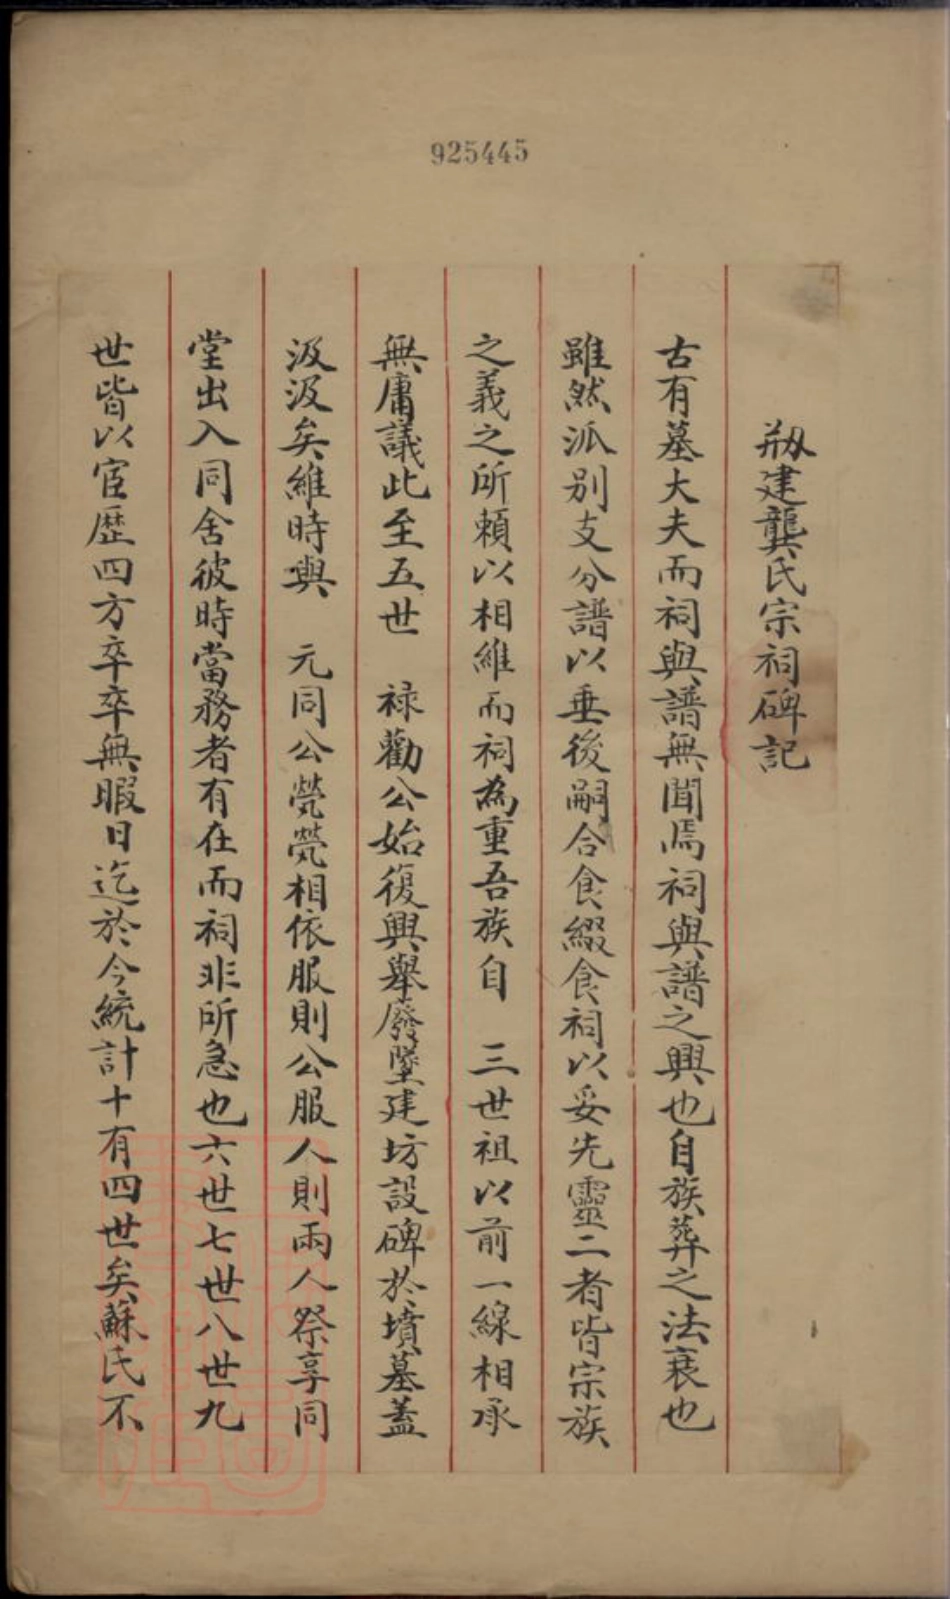 925445
剏建龔氏宗祠碑記
古有墓大夫而祠與譜無聞焉祠與譜之興也自族葬之法衰也
雖然派別支分譜以垂後嗣合食綴食祠以妥先靈二者皆宗族
之義之所賴以相維而祠為重吾族自 三世祖以前一線相承
無庸議此至五世 祿勸公始復興舉廢墜建坊設碑於墳墓蓋
汲汲矣維時與 元同公煢煢相依服則公服人則兩人祭享同
堂出入同舍彼時當務者有在而祠非所急也六世七世八世九
世皆以宦歷四方卒卒無暇日迄於今統計十有四世矣蘇氏不